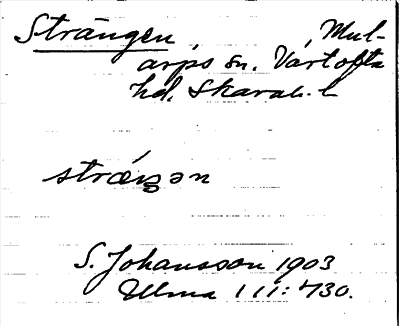 Strängen, Mul-
arps sn. Vartofta
hd. Skarab. l
strǽŋən
S. Johansson 1903
Ulma 111:430.